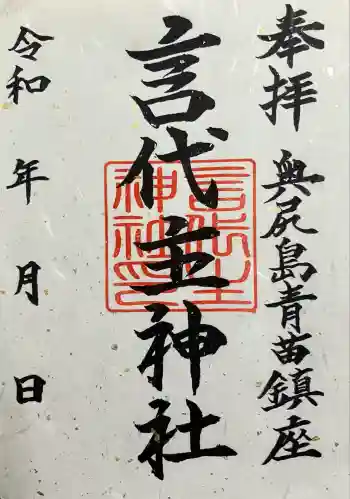 奉拝
奥尻島青苗鎮座
言代主神社
言代主
神社印
令和 年 月 日